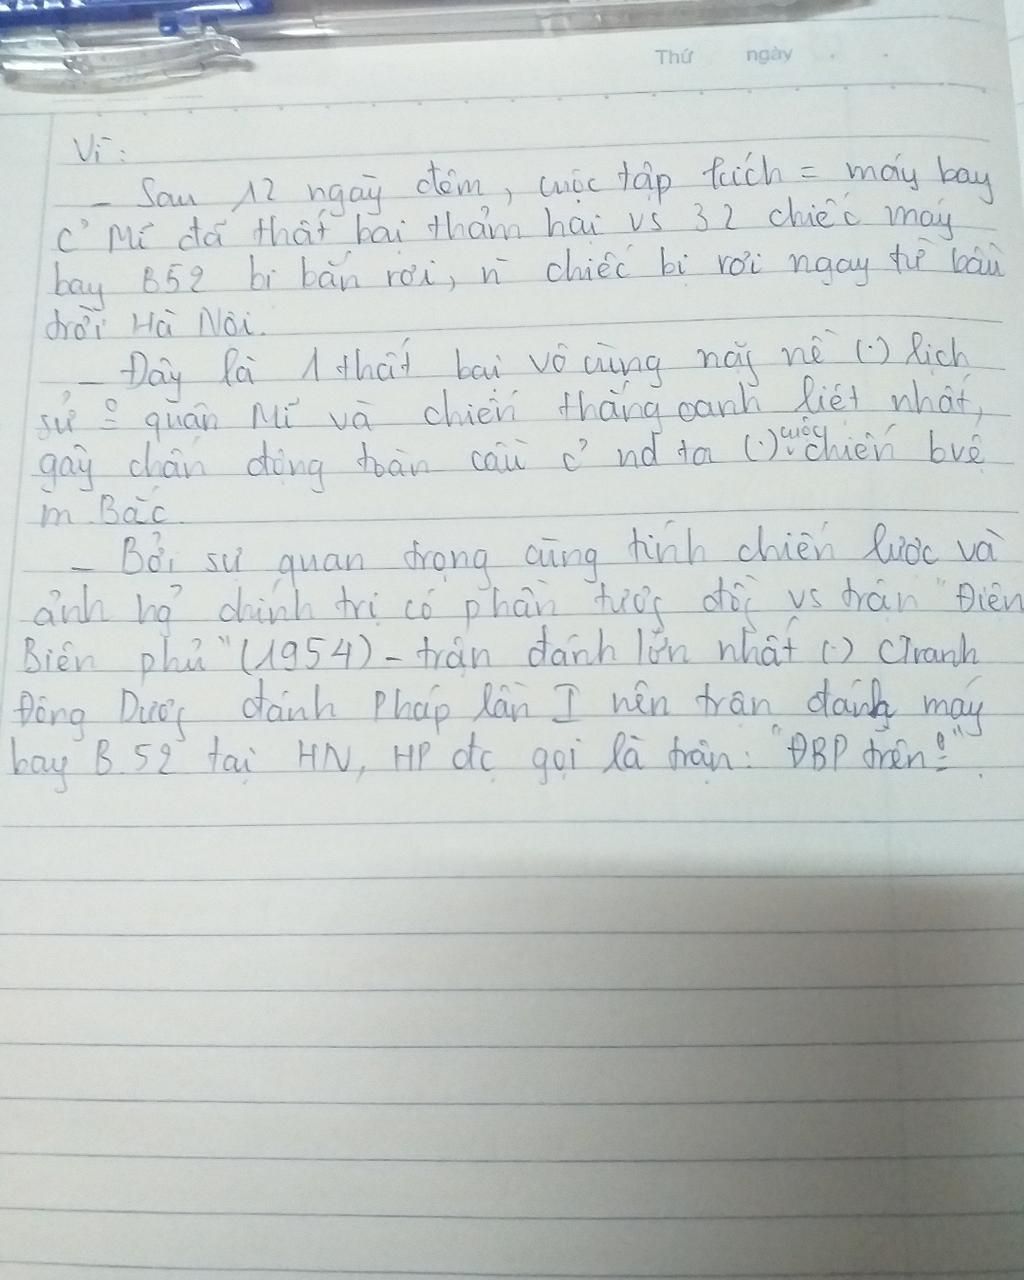 Thứ ngày
Vì:
- Sau 12 ngày đêm, cuộc tập kích = máy bay
c' Mĩ đã thất bại thảm hại vs 32 chiếc máy
bay B52 bị bắn rơi, n` chiếc bị rơi ngay từ bầu
trời Hà Nội.
- Đây là 1 thất bại vô cùng nặng nề (.) lịch
sử quân Mĩ và chiến thắng oanh liệt nhất,
gây chấn động toàn cầu c' nd ta (.) cuộc chiến bvệ
m. Bắc.
- Bởi sự quan trọng cùng tính chiến lược và
ảnh hg' chính trị có phần tương đồg vs trận "Điện
Biên phủ" (1954) - trận đánh lớn nhất (.) cTranh
Đông Dương đánh Pháp lần I nên trận đánh máy
bay B.52 tại HN, HP đc gọi là trận: "ĐBP trên".